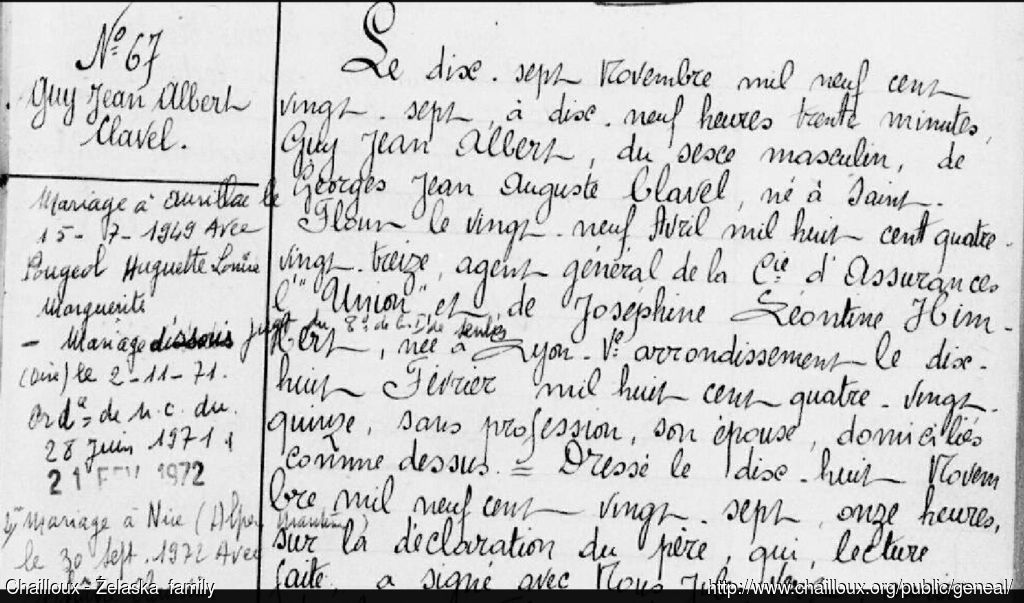 N° 67
Guy Jean Albert
Clavel.
Mariage à Aurillac le
15-7-1949 Avec
Pougeol Huguette Louise
Marguerite
- Mariage dissous jugt du
(Oise) le 2-11-71.
de n.c. du.
28 Juin 1971
21 FEV 1972
Mariage à Nice (Alpes Maritimes)
le 30 Sept. 1972 Avec
Le dix-sept Novembre mil neuf cent
vingt-sept, à dix-neuf heures trente minutes,
Guy Jean Albert, du sexe masculin, de
Georges Jean Auguste Clavel, né à Saint-
Flour le vingt-neuf Avril mil huit cent quatre-
vingt-treize, agent général de la Cie d'Assurances
l'"Union" et de Joséphine Léontine Him-
bert, née à Lyon-Ve arrondissement le dix-
huit Février mil huit cent quatre-vingt-
quinze, sans profession, son épouse, domiciliés
comme dessus. = Dressé le dix-huit Novem
bre mil neuf cent vingt-sept, onze heures,
sur la déclaration du père, qui, lecture
faite, a signé avec Nous
Chailloux - Żelaska family
http://www.chailloux.org/public/geneal/